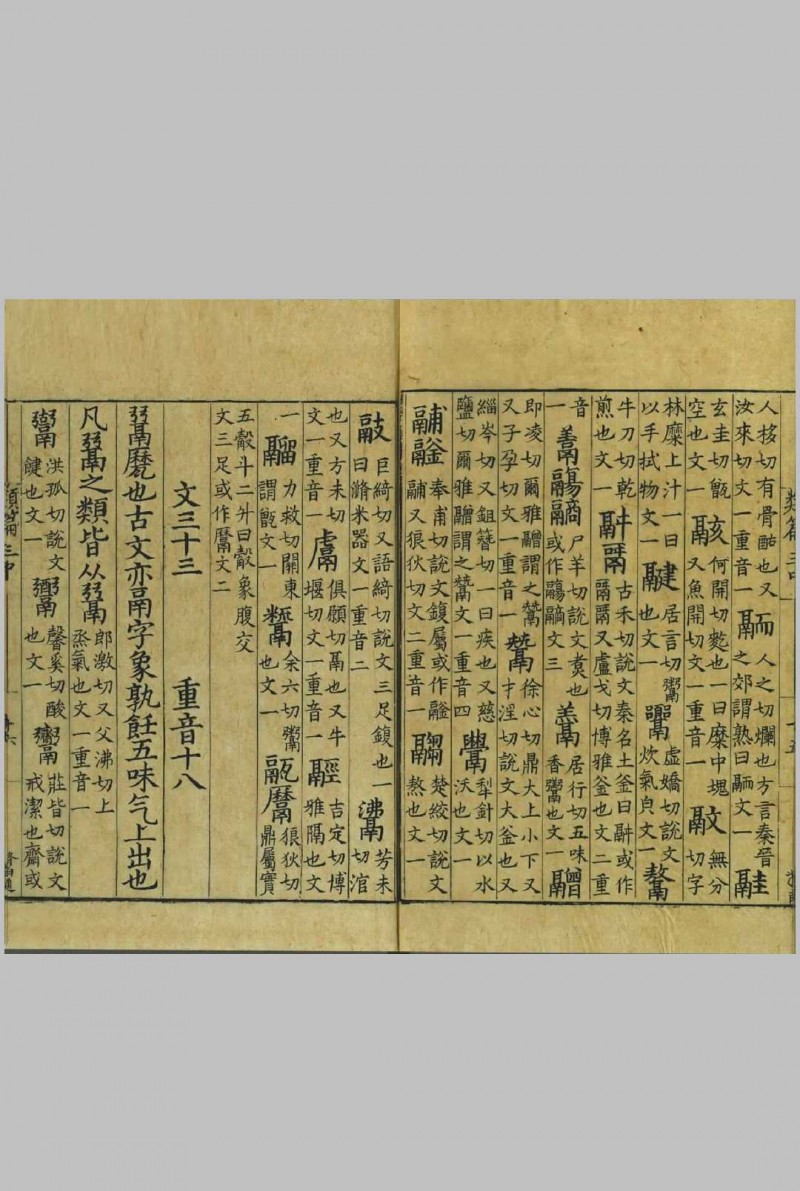 人移切有骨醢也又
汝來切文一重音一
人之切爛也方言秦晉
之郊謂熟曰文一
玄圭切甑
空也文一
何開切麧也一曰糜中塊
又魚開切文一重音一
無分
切字
林糜上汁一曰
以手拭物文一
居言切鬻
也文一
虛嬌切說文
炊氣皃文一
牛刀切乾
煎也文一
古禾切說文秦名土釜曰或作
又盧戈切博雅釜也文二重
音
一
尸羊切說文煑也
或作文三
居行切五味
香鬻也文一
䰝
即凌切爾雅䰝謂之鬵
又子孕切文一重音一
鬵
徐心切鼎大上小下又
才淫切說文大釜也又
緇岑切又鉏簪切一曰疾也又慈
鹽切爾雅䰝謂之鬵文一重音四
犁針切以水
沃也文一
鬴
奉甫切說文鍑屬或作
鬴又狼狄切文二重音一
楚絞切說文
熬也文一
䰙
巨綺切又語綺切說文三足鍑也一
曰滫米器文一重音二
芳未
切涫
也又方未切
文一重音一
鬳
俱願切鬲也又牛
堰切文一重音一
吉定切博
雅隔也文
一
力救切關東
謂甑文一
余六切鬻
也文一
狼狄切
鼎屬實
五觳斗二升曰觳象腹交
文三足或作文二
文三十三 重音十八
䰜也古文亦鬲字象孰飪五味气上出也
凡䰜之類皆从䰜
郎激切又父沸切上
烝氣也文一重音一
洪孤切說文
鍵也文一
馨奚切酸
也文一
莊皆切說文
戒潔也齋或